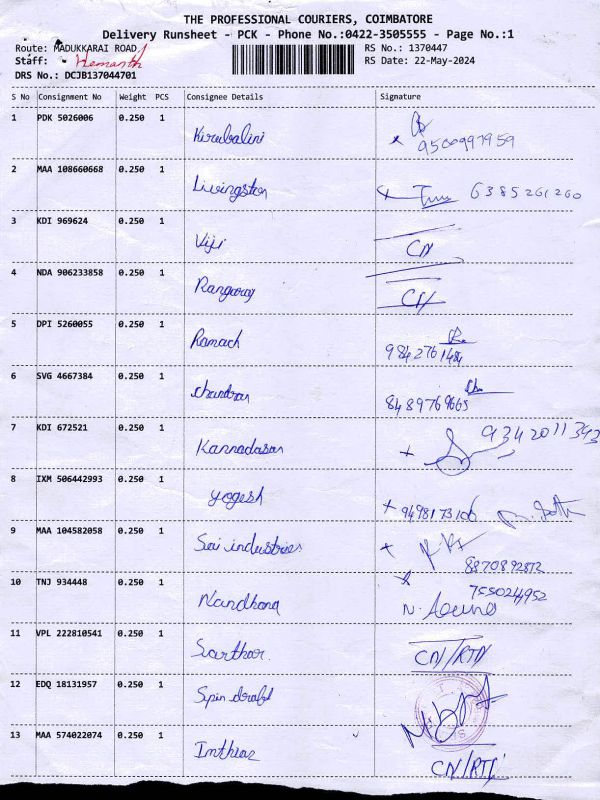 THE PROFESSIONAL COURIERS, COIMBATORE
Delivery Runsheet - PCK - Phone No.:0422-3505555 - Page No.:1
Route: MADUKKARAI ROAD RS No.: 1370447
Staff: Hemanth RS Date: 22-May-2024
DRS No.: DCJB137044701
S No Consignment No Weight PCS Consignee Details Signature
1 PDK 5026006 0.250 1 Kirubalini 9500997959
2 MAA 108660668 0.250 1 Livingston 6385261260
3 KDI 969624 0.250 1 Viji CN
4 NDA 906233858 0.250 1 Rangaraj CN
5 DPI 5260055 0.250 1 Ramach 9842761484
6 SVG 4667384 0.250 1 chandran 8489769665
7 KDI 672521 0.250 1 Kannadasan 9342011343
8 IXM 506442993 0.250 1 yogesh 9498173106
9 MAA 104582058 0.250 1 Sai industries 8870892872
10 TNJ 934448 0.250 1 Nandhana 7550244952
11 VPL 222810541 0.250 1 Sarthar. CN/RTN
12 EDQ 18131957 0.250 1 Spin draft
13 MAA 574022074 0.250 1 Imthiaz CN/RTN